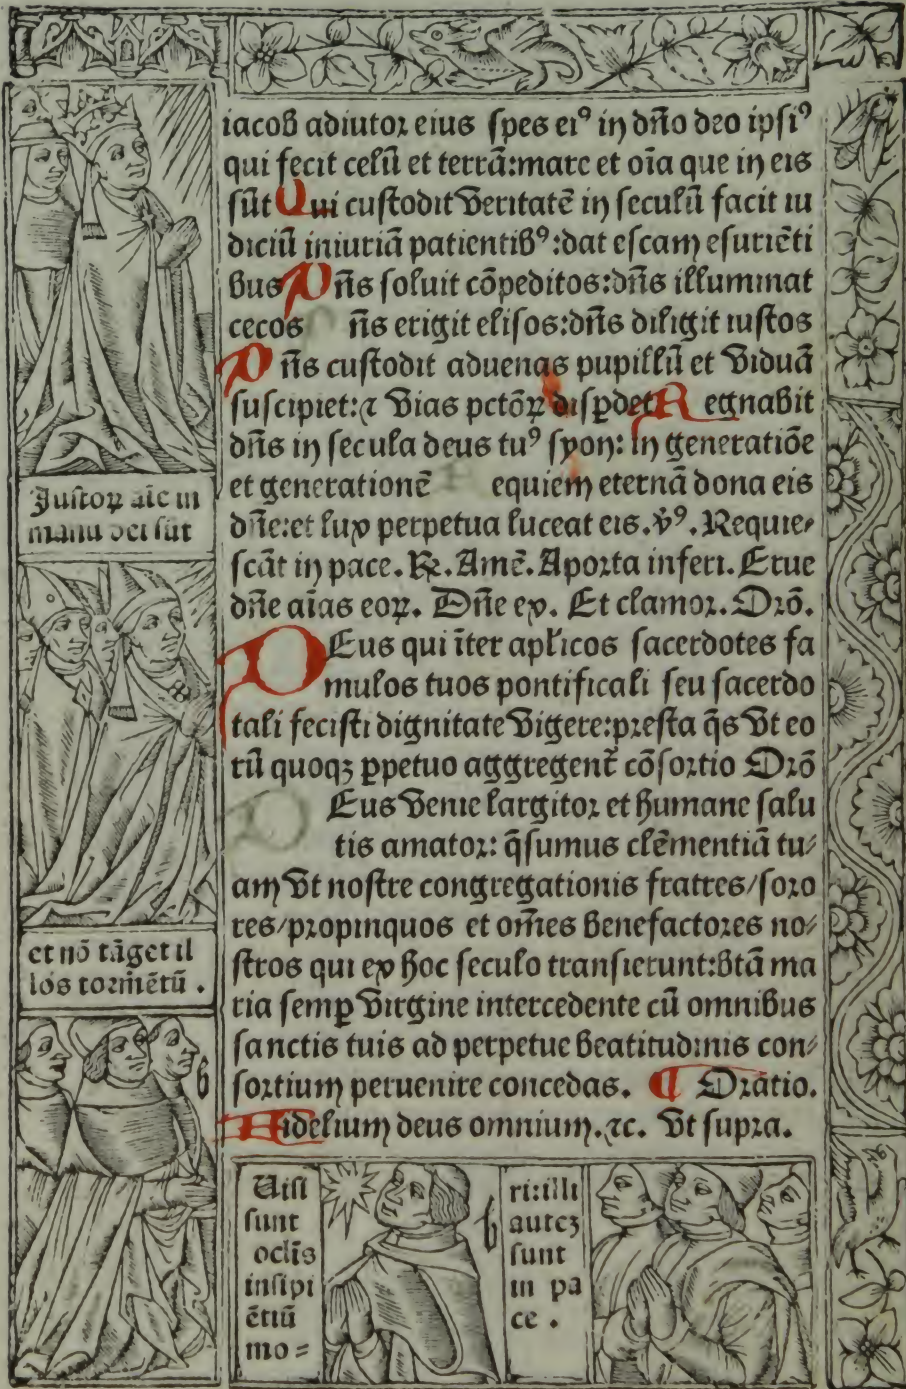 iacob adiutor eius spes ei⁹ in dño deo ipsi⁹
qui fecit celū et terrā:mare et oīa que in eis
sūt Qui custodit veritatē in seculū facit iu
diciū iniuriā patientib⁹:dat escam esuriēti
bus Dñs soluit cōpeditos:dñs illuminat
cecos ñs erigit elisos:dñs diligit iustos
Dñs custodit aduenas pupillū et viduā
suscipiet:⁊ vias pctōꝝ disꝑdet Regnabit
dñs in secula deus tu⁹ syon: in generatiōe
et generationē Requiem eternā dona eis
dñe:et lux perpetua luceat eis.v̉⁹.Requie⸗
scāt in pace.℟.Amē.Aporta inferi.Erue
dñe aīas eoꝝ. Dñe ex. Et clamor.Orō.
DEus qui īter apl̄icos sacerdotes fa
mulos tuos pontificali seu sacerdo
tali fecisti dignitate vigere:presta q̄s vt eo
rū quoqꝫ ꝑpetuo aggregent᷑ cōsortio Orō
DEus venie largitor et humane salu
tis amator: q̄sumus clēmentiā tu⸗
am vt nostre congregationis fratres/soro
res/propinquos et om̄es benefactores no⸗
stros qui ex hoc seculo transierunt:btā ma
ria semꝑ virgine intercedente cū omnibus
sanctis tuis ad perpetue beatitudinis con⸗
sortium peruenire concedas. ¶ Oratio.
Fidelium deus omnium.⁊c. vt supra.
Iustoꝝ aīe in
manu dei sūt
et nō tāget il
los tormētū .
b
Uisi
sunt
oclīs
insipi
ētiū
mo=
b
ri:illi
auteꝫ
sunt
in pa
ce .